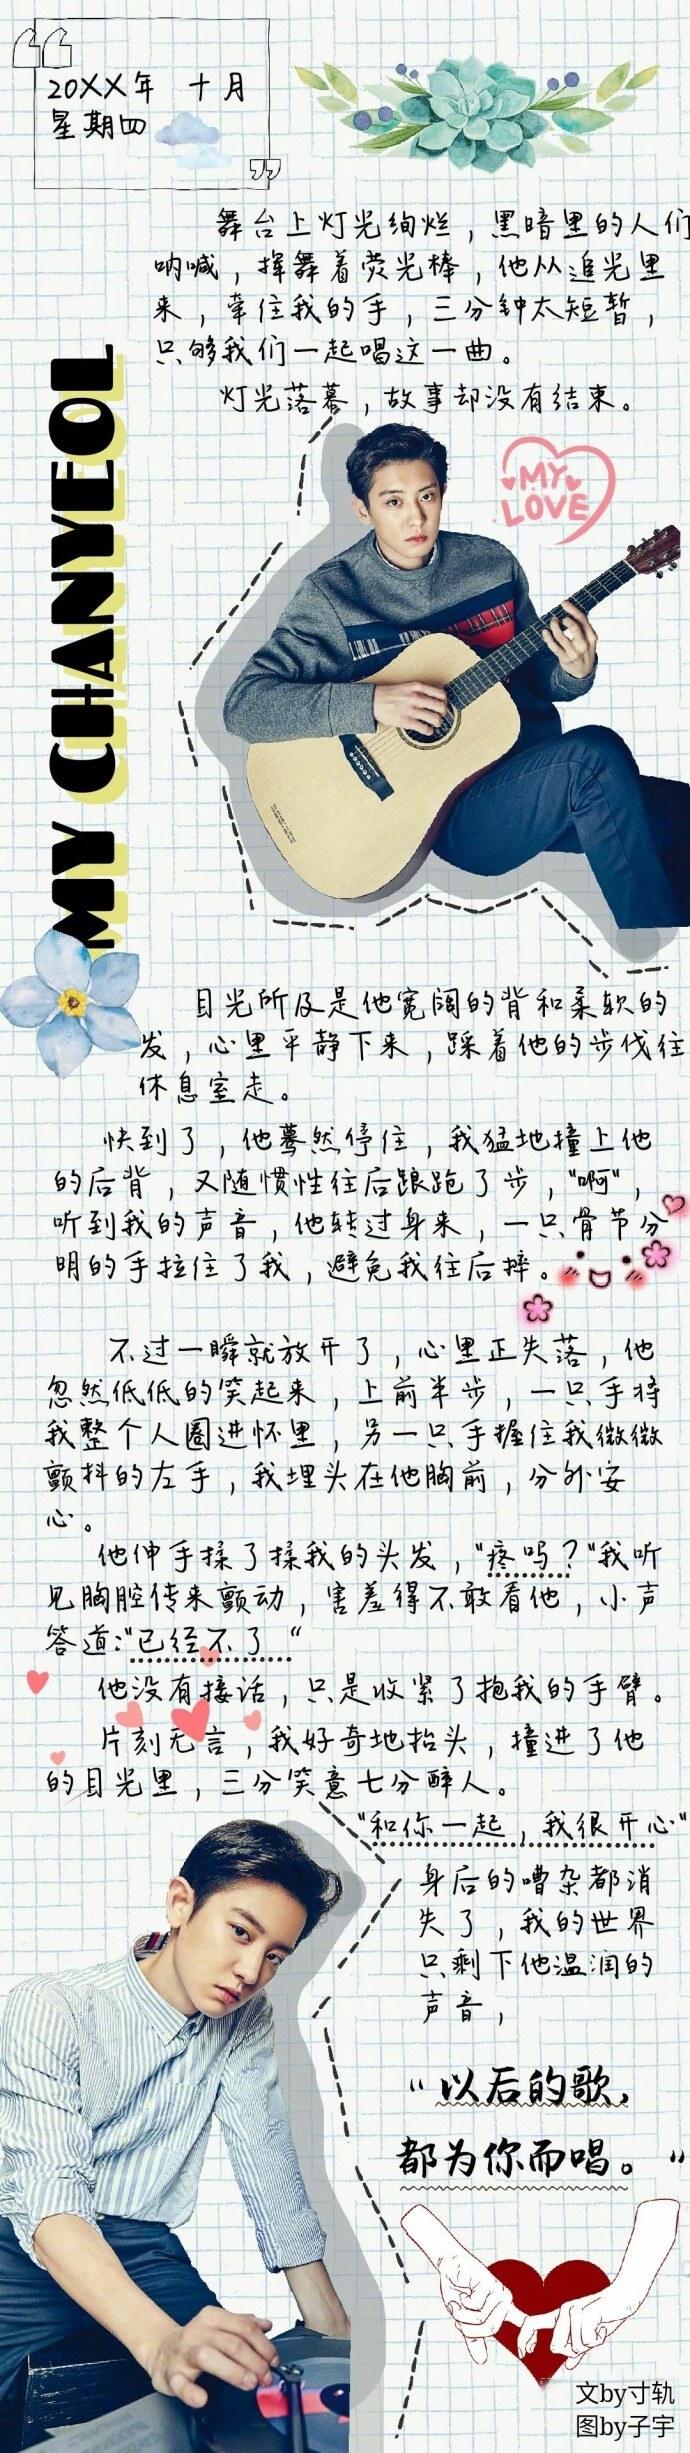 20XX年 十月
星期四
舞台上灯光绚烂，黑暗里的人们
呐喊，挥舞着荧光棒，他从追光里
来，牵住我的手，三分钟太短暂，
只够我们一起唱这一曲。
灯光落幕，故事却没有结束。
MY CHANYEOL
MY
LOVE
目光所及是他宽阔的背和柔软的
发，心里平静下来，踩着他的步伐往
休息室走。
快到了，他蓦然停住，我猛地撞上他
的后背，又随惯性往后踉跄了步，"啊"，
听到我的声音，他转过身来，一只骨节分
明的手拉住了我，避免我往后摔。
不过一瞬就放开了，心里正失落，他
忽然低低的笑起来，上前半步，一只手将
我整个人圈进怀里，另一只手握住我微微
颤抖的左手，我埋头在他胸前，分外安
心。
他伸手揉了揉我的头发，"疼吗？"我听
见胸腔传来颤动，害羞得不敢看他，小声
答道："已经不了"
他没有接话，只是收紧了抱我的手臂。
片刻无言，我好奇地抬头，撞进了他
的目光里，三分笑意七分醉人。
"和你一起，我很开心"
身后的嘈杂都消
失了，我的世界
只剩下他温润的
声音，
"以后的歌，
都为你而唱。"
文by寸轨
图by子宇